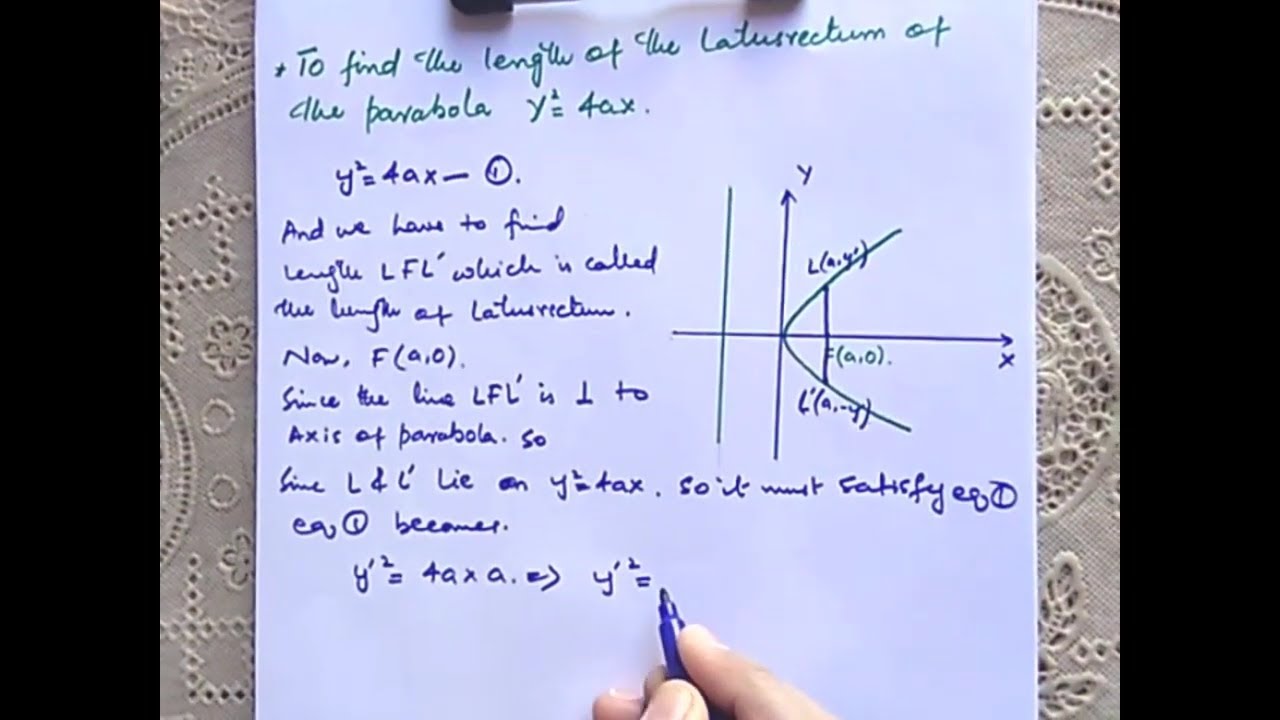 * To find the length of the Latusrectum of
the parabola y²= 4ax.
y²= 4ax — ①.
And we have to find
length LFL′ which is called
the length of Latusrectum.
Now, F(a,0).
Since the line LFL′ is ⊥ to
Axis of parabola. so
Sine L & L′ Lie on y²=4ax. so it must satisfy eq ①
eq ① becomes.
y′²= 4a x a. => y′²=
Y
L(a,y′)
F(a,0).
X
L′(a,-y)